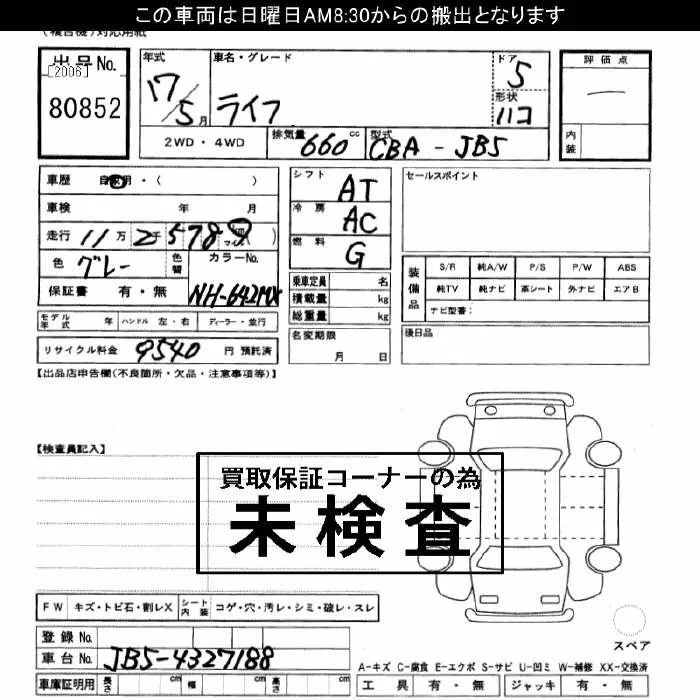 この車両は日曜日AM8:30からの搬出となります
(複合機)対応用紙
出品No. [2006] 80852
年式 17/5月
車名・グレード ライフ
ドア 5
形状 ハコ
評価点 —
内装
2WD・4WD 排気量 660cc 型式 CBA-JB5
車歴 自家用・( )
車検 年 月
走行 11万2千578 km マイル( )
色 グレー 色替 カラーNo. NH-642MX
保証書 有・無
シフト AT
冷房 AC
燃料 G
乗車定員 名
積載量 kg
総重量 kg
名変期限 月 日
セールスポイント
装備品 S/R 純A/W P/S P/W ABS
純TV 純ナビ 革シート 外ナビ エアB
ナビ型番:
後日品
モデル年式 年 ハンドル 左・右 ディーラー・並行
リサイクル料金 9540 円 預託済
【出品店申告欄(不良箇所・欠品・注意事項等)】
【検査員記入】
買取保証コーナーの為
未検査
FW キズ・トビ石・割レX シート内装 コゲ・穴・汚レ・シミ・破レ・スレ
登録No.
車台No. JB5-4327188
車庫証明用 長さ cm 幅 cm 高さ cm
スペア
A-キズ C-腐食 E-エクボ S-サビ U-凹ミ W-補修 XX-交換済
工具 有・無 ジャッキ 有・無